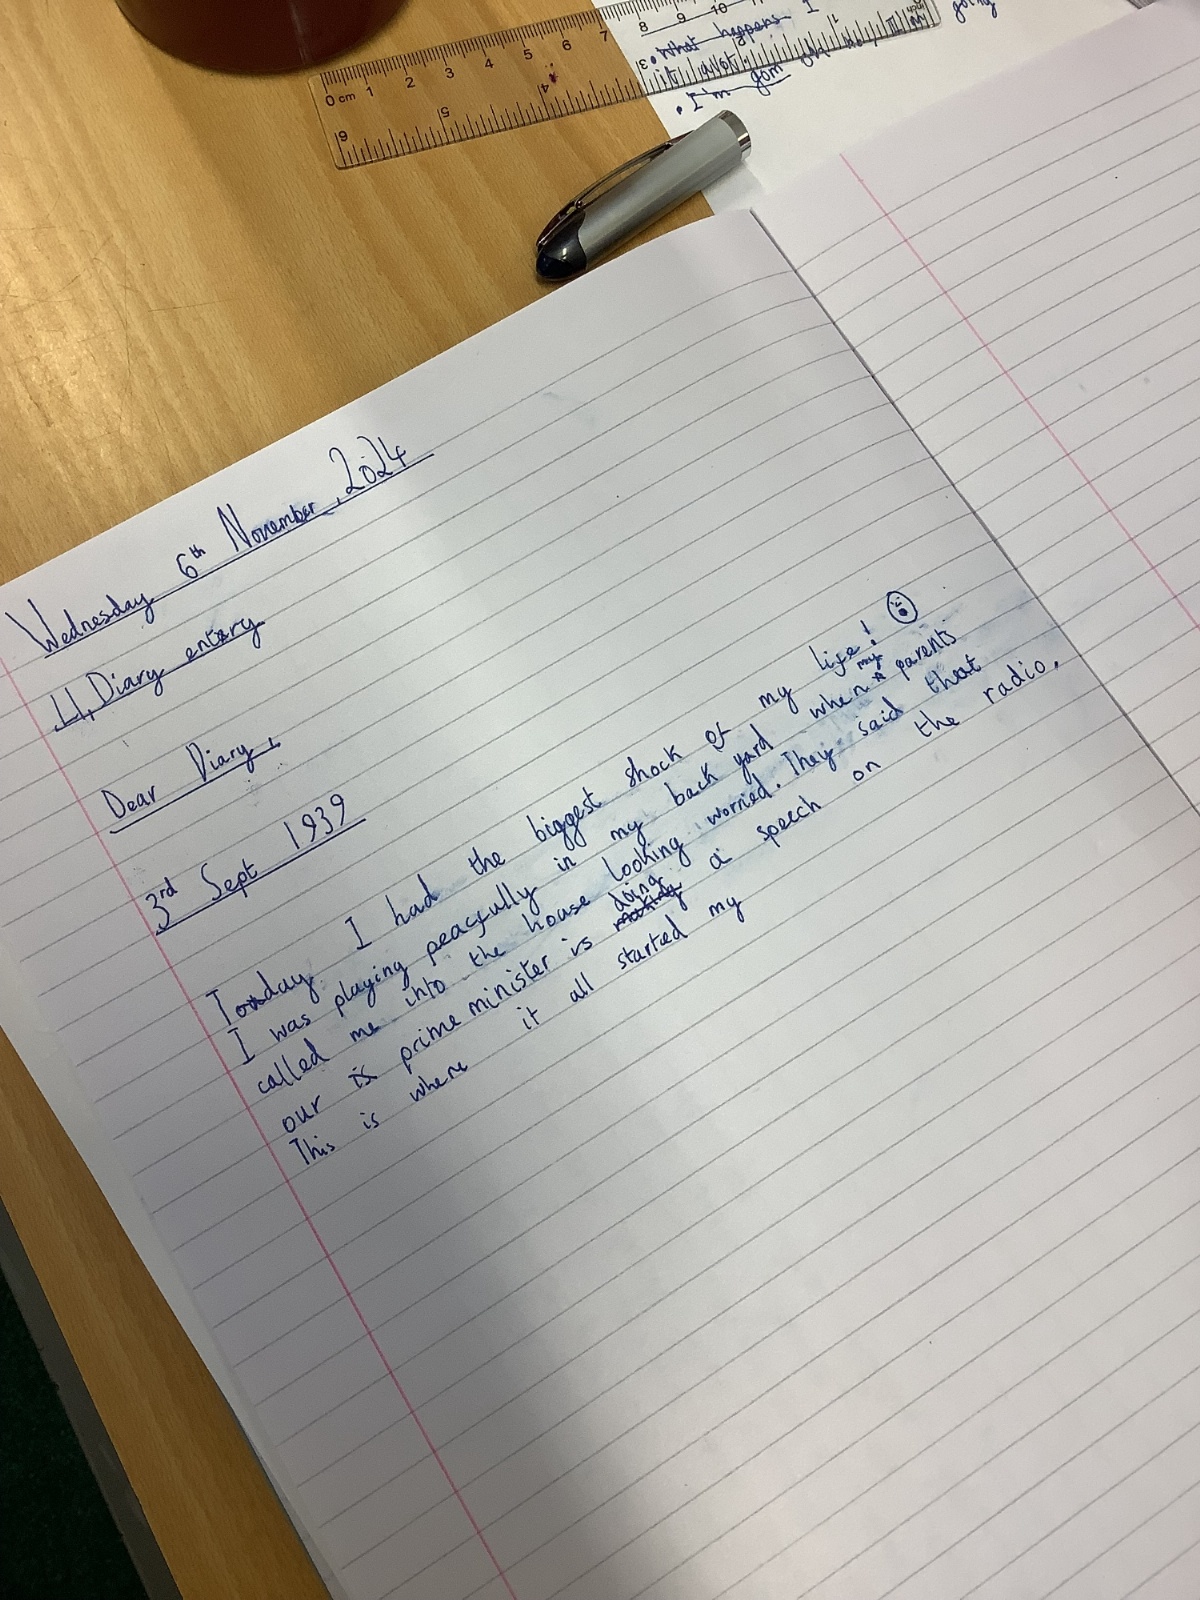 0 cm 1 2 3 4 5 6 7 8 9 10
6 5 4 3
• What happens I
it
• I'm
going
Wednesday 6th November, 2024
LI, Diary entry
Dear Diary,
3rd Sept 1939
Today I had the biggest shock of my life!
I was playing peacfully in my back yard when my parents
called me into the house looking worried. They said that
our is prime minister is making doing a speech on the radio.
This is where it all started my